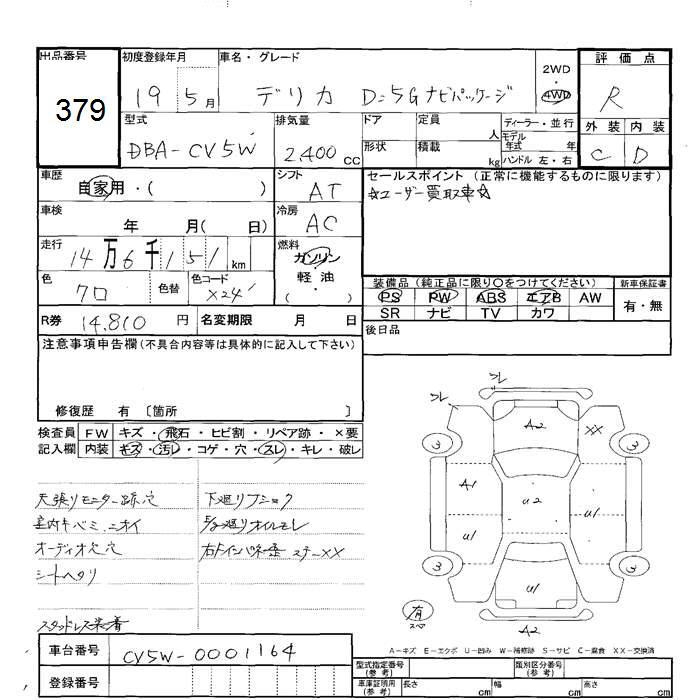 出品番号
379
初度登録年月
19 5月
車名・グレード
デリカ D:5 G ナビパッケージ
2WD
・
4WD
評価点
R
外装 内装
C D
型式
DBA-CV5W
排気量
2,400 cc
ドア
形状
定員 人
積載 kg
ディーラー・並行
モデル
年式 年
ハンドル 左・右
車歴
自家用・( )
シフト
AT
セールスポイント (正常に機能するものに限ります)
☆ユーザー買取車☆
車検
年 月( 日)
冷房
AC
走行
14万6千151 km
燃料
ガソリン
軽油
( )
色
クロ
色替
色コード
X24
装備品 (純正品に限り〇をつけてください)
PS PW ABS エアB AW
SR ナビ TV カワ
新車保証書
有・無
R券 14,810 円
名変期限 月 日
後日品
注意事項申告欄(不具合内容等は具体的に記入して下さい)
修復歴 有 〔箇所 〕
検査員
記入欄
FW キズ・飛石・ヒビ割・リペア跡・×要
内装 キズ・汚レ・コゲ・穴・スレ・キレ・破レ
天張りモニター跡穴
室内キバミ、ニオイ
オーディオ穴穴
シートヘタリ
スタッドレス装着
下廻りフショク
オイルモレ
フレ
フレ
A2
XX
3
3
A1
U2
U1
U1
U1
3
3
U1
有
スペア
A2
A-キズ E-エクボ U-凹み W-補修跡 S-サビ C-腐食 XX-交換済
車台番号
CV5W-0001164
登録番号
型式指定番号
(参考)
類別区分番号
(参考)
車庫証明用
(参考)
長さ cm
幅 cm
高さ cm